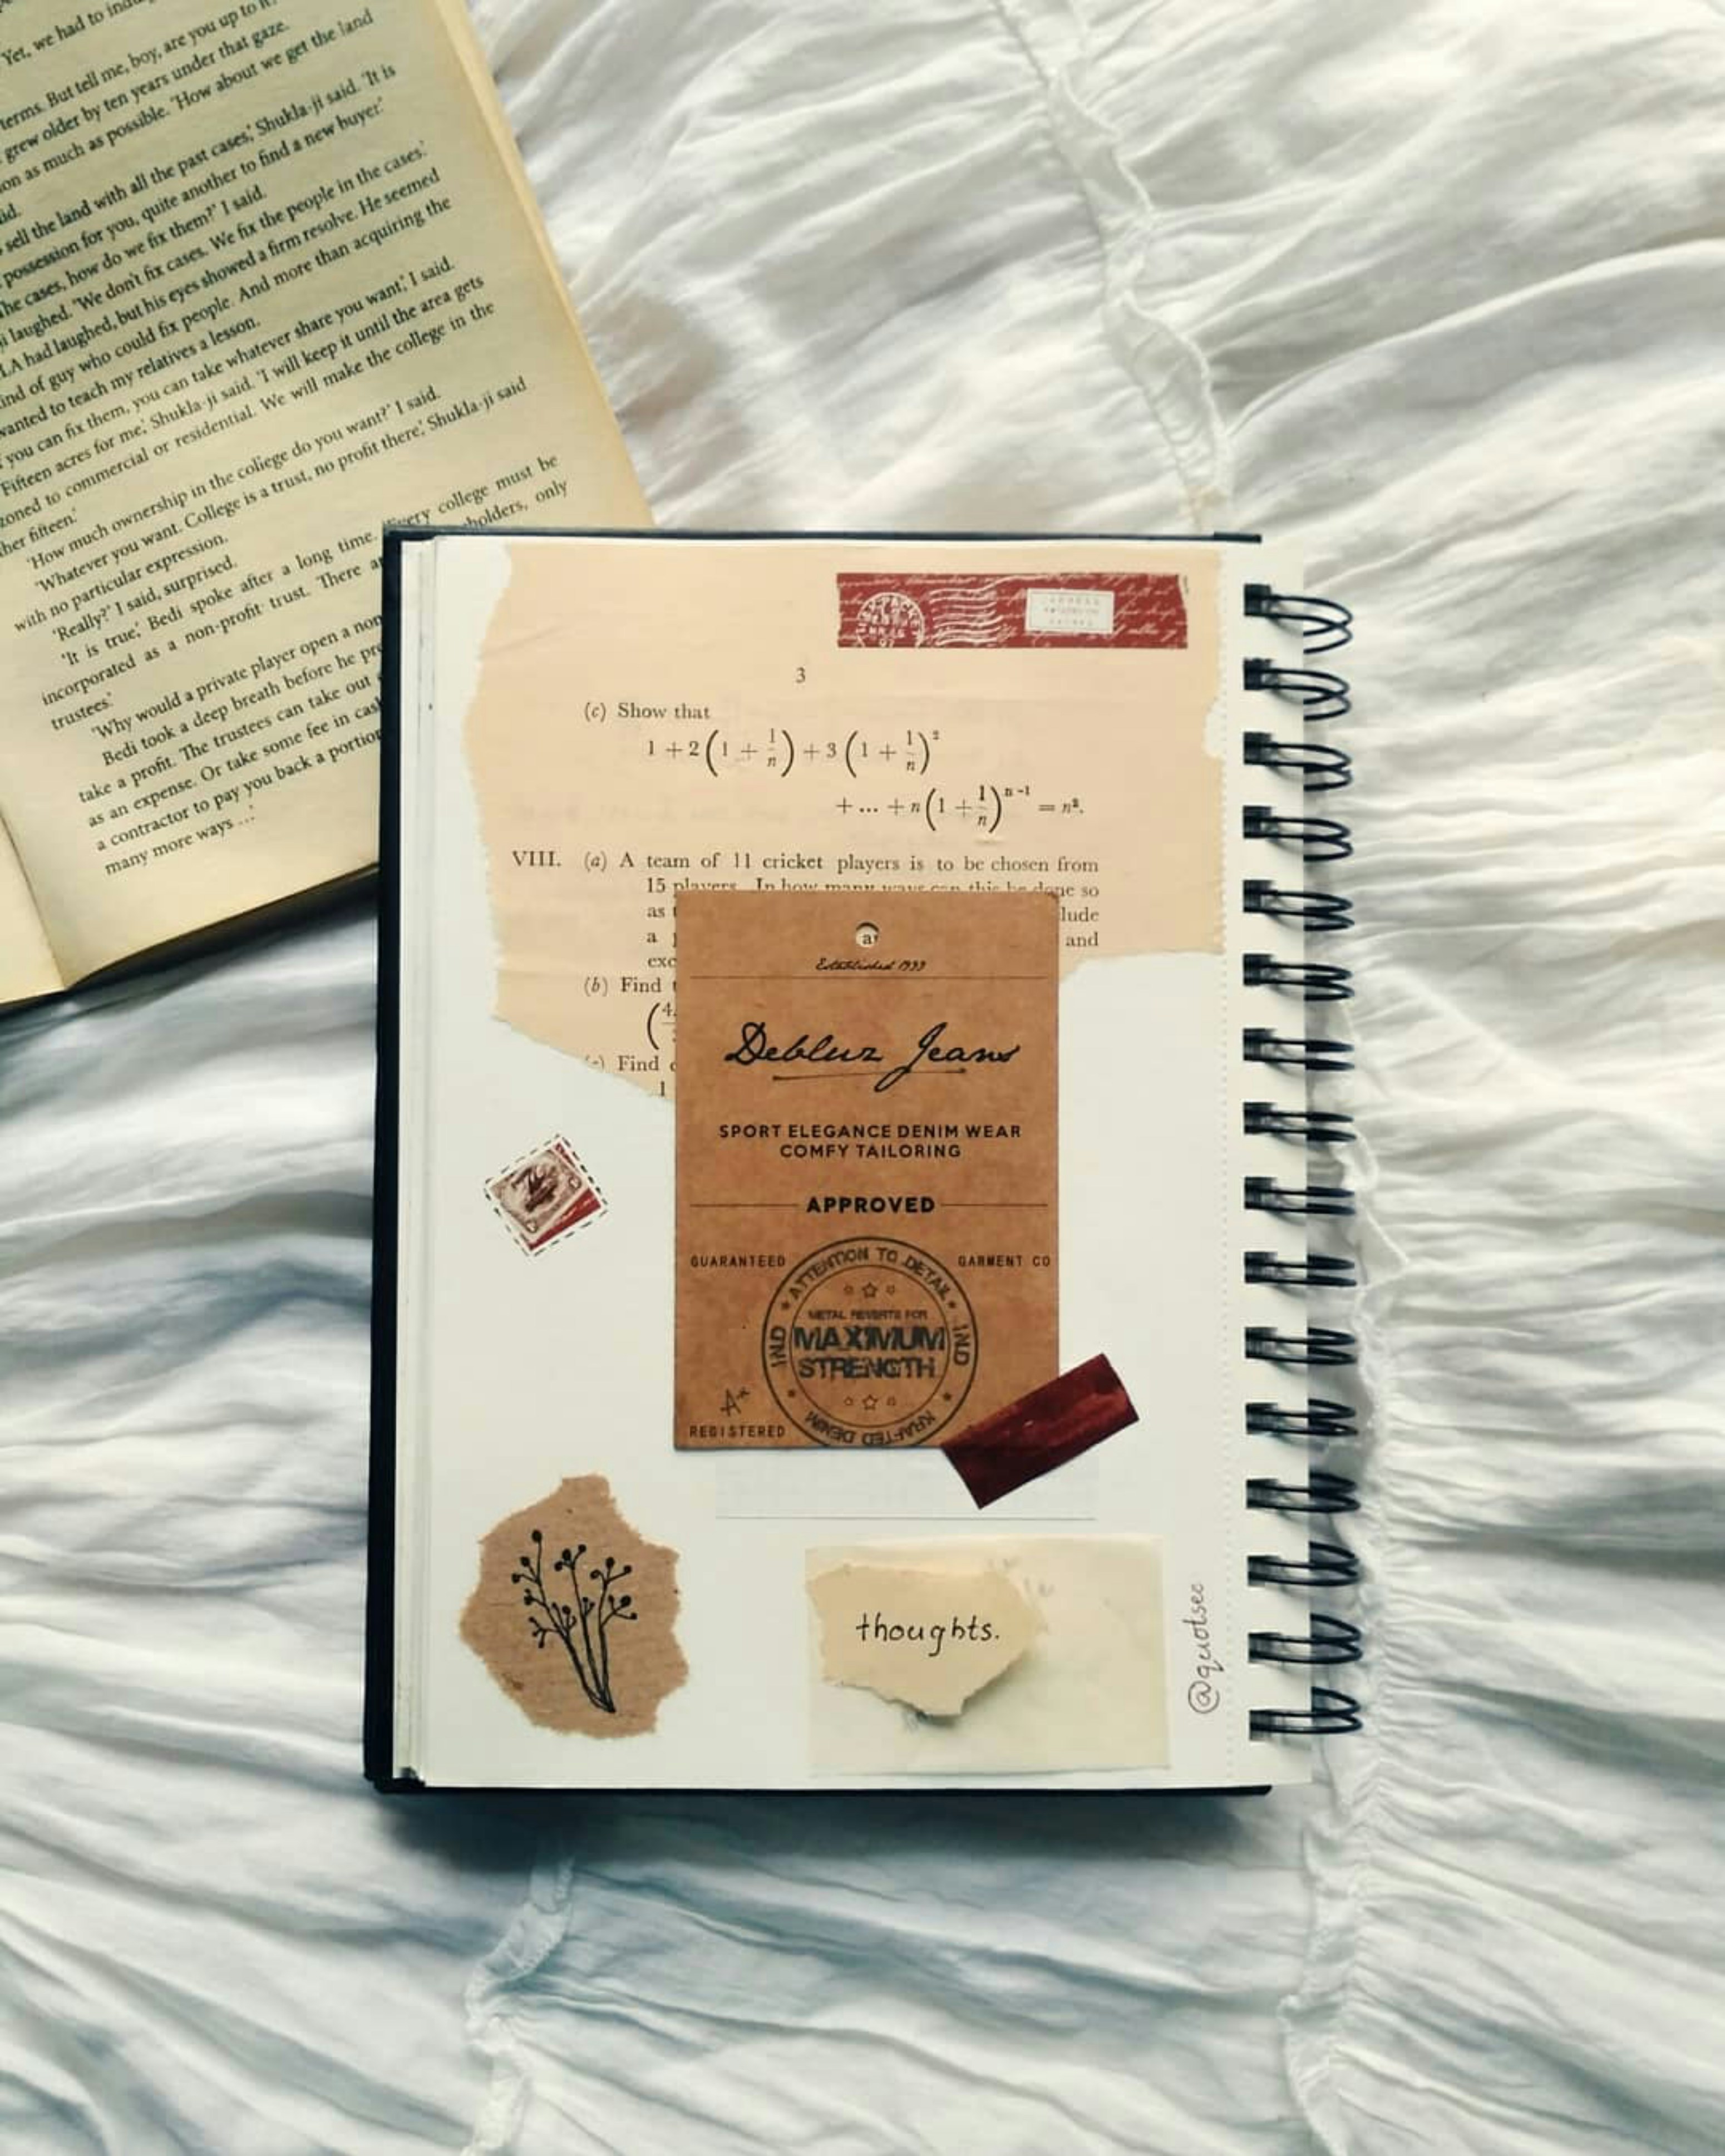 Yet, we had to
terms. But tell me, boy, are you up to it.
grew older by ten years under that gaze.
on as much as possible. 'How about we get the land
sell the land with all the past cases,' Shukla-ji said. 'It is
possession for you, quite another to find a new buyer.'
the cases, how do we fix them?' I said.
laughed. 'We don't fix cases. We fix the people in the cases.'
LA had laughed, but his eyes showed a firm resolve. He seemed
kind of guy who could fix people. And more than acquiring the
wanted to teach my relatives a lesson.
you can fix them, you can take whatever share you want,' I said.
Fifteen acres for me,' Shukla-ji said. 'I will keep it until the area gets
zoned to commercial or residential. We will make the college in the
ther fifteen.'
'How much ownership in the college do you want?' I said.
'Whatever you want. College is a trust, no profit there,' Shukla-ji said
with no particular expression.
'Really?' I said, surprised.
'It is true,' Bedi spoke after a long time. 'Every college must be
incorporated as a non-profit trust. There holders, only
trustees.'
'Why would a private player open a non
Bedi took a deep breath before he
take a profit. The trustees can take out
as an expense. Or take some fee in cash
a contractor to pay you back a portion
many more ways ...'
3
(c) Show that
1 + 2 (1 + 1/n) + 3 (1 + 1/n)²
+ ... + n (1 + 1/n)ⁿ⁻¹ = n².
VIII. (a) A team of 11 cricket players is to be chosen from
15 players. In how many ways can this be done so
as lude
a and
exc
(b) Find
(4
Find
1
a
Established 1999
Debluz Jeans
SPORT ELEGANCE DENIM WEAR
COMFY TAILORING
APPROVED
GUARANTEED GARMENT CO
ATTENTION TO DETAIL
IND IND
METAL REVERTS FOR
MAXIMUM
STRENGTH
KRAFTED DENIM
REGISTERED
thoughts.
@quotsec